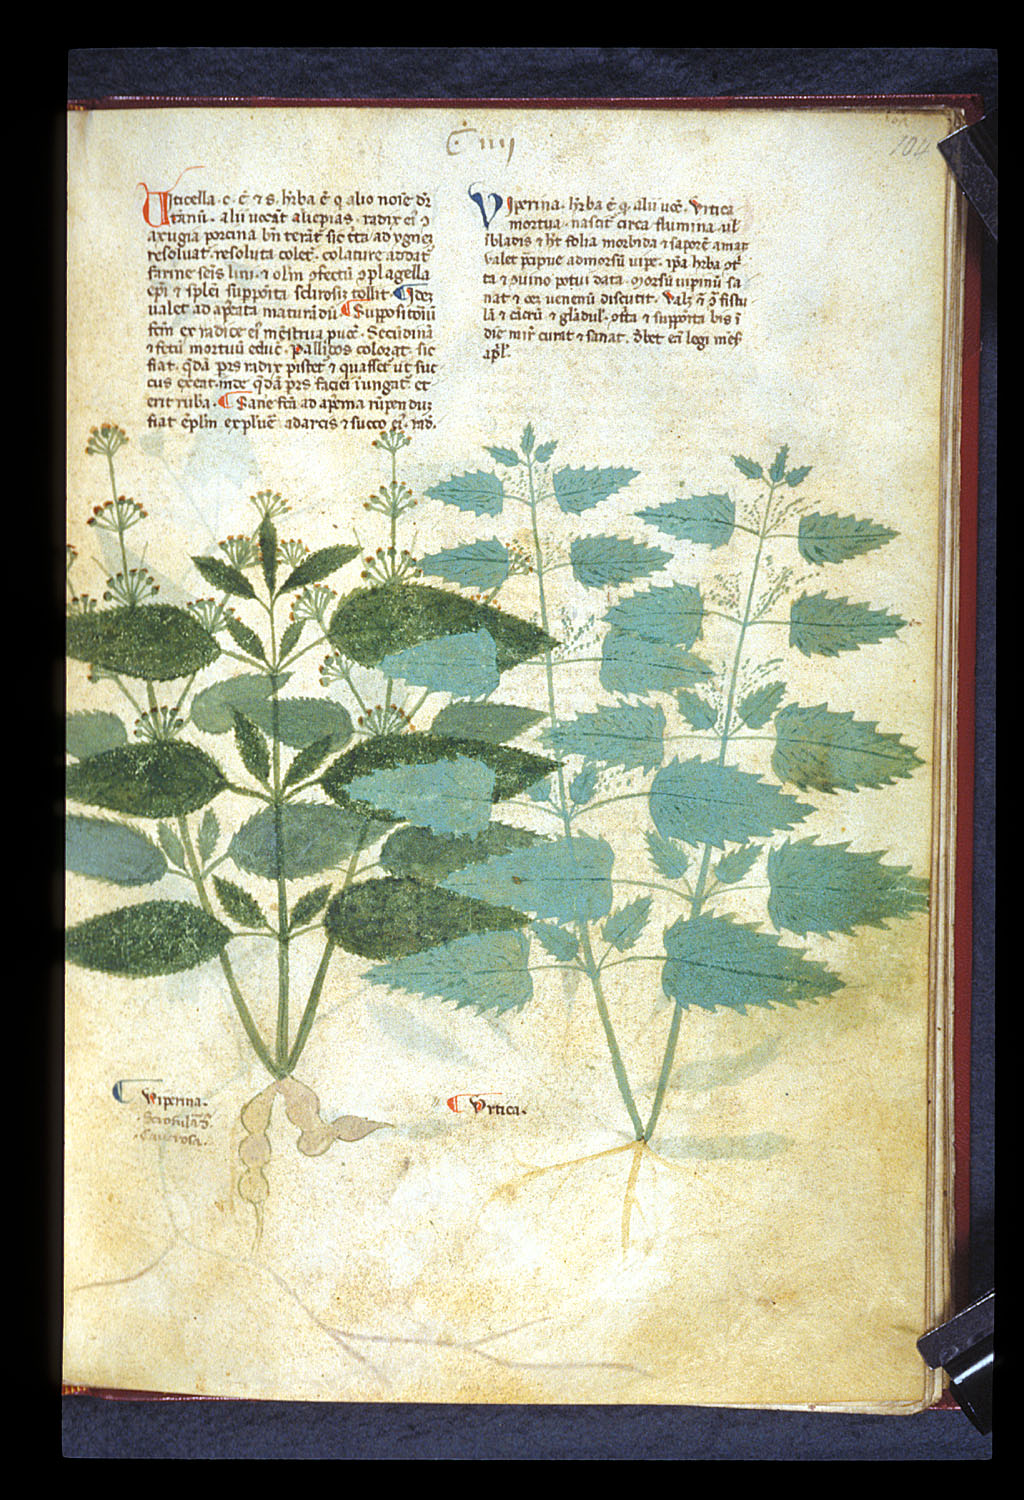 C iiij
104
Uiticella. c. ē ⁊ s. hr̄ba ē q̄ alio noīe dr̄
utanū. alii uocāt aliepias. radix ei᷒ ꝯ
axugia porcina bn̄ terāt᷑ sic
resoluat᷑. resoluta colet᷑. colature addat᷑
farine sēis lini. ⁊ olm̄ ꝯfectū plagella
ep̄i ⁊ splēi suppoīta sclirosiz tollit. Idez
ualet ad apēata maturādū. Suppositoiū
fcm̄ ex radice ei᷒ mēstrua ꝓuoc̄. Secūdinā
⁊ fetū mortuū educ̄. Pallidos colorat᷑. sic
fiat. q̄dā p̄rs radix pistet᷑ ⁊ quasset᷑ ut suc
cus exeat. inde q̄dā p̄rs faciei īungat᷑. et
erit ruba. Sane fcā ad apēma rūpenduz
fiat ēplm̄ ex pluē adarcis ⁊ succo ei᷒. rad̄.
Viperina. hr̄ba ē q̄. alii uoc̄. Vrtica
mortua. nascit᷑ circa flumina. ul᷑
ībladis ⁊ hēt folia morbida ⁊ saporē amar̄
valet p̄cipue ad morsū uipe. ip̄a hr̄ba ꝯt̄
ta ⁊ ꝯuino potui data. morsū uipinū sa
nat ⁊ oēz uenenū discutit. fistu
lā ⁊ cācrū ⁊ glādul᷑. ꝯtīta ⁊ suppoīta bis ī
die mir̄ curat ⁊ sanat. Dēbet eī legi mēse
ap̄l᷑.
Viperina.
Scrofulas.
Cauerosa.
Vrtica.